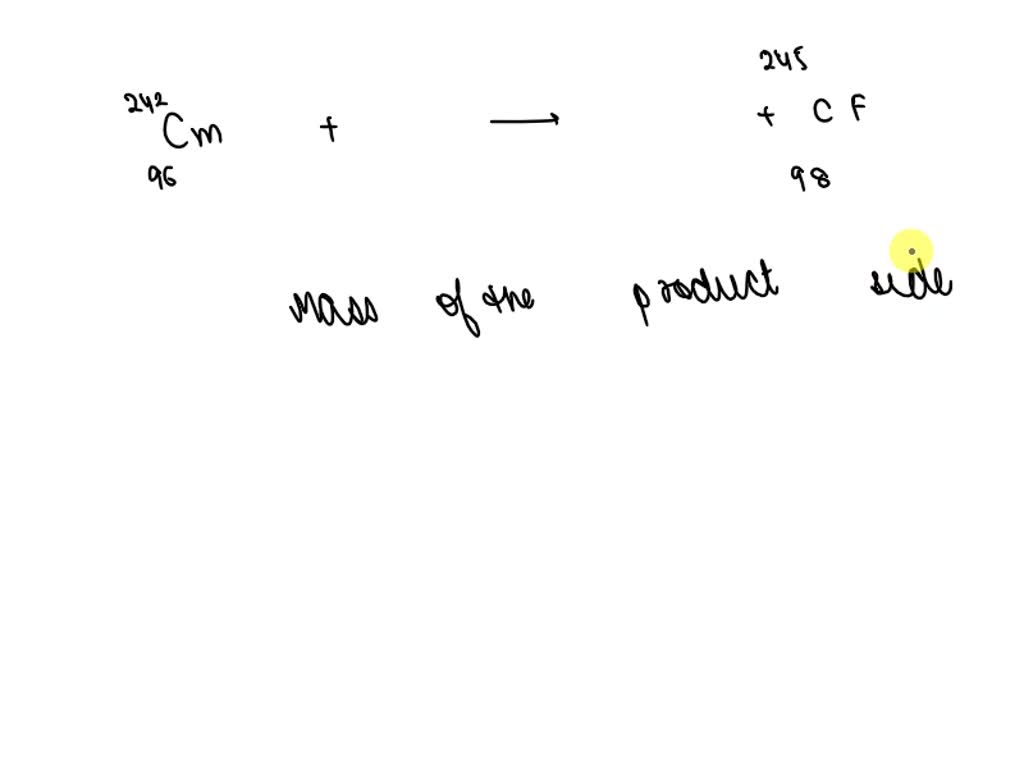 245
242
Cm + → + CF
96 98
mass of the product side